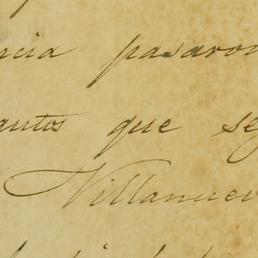 ncia pasaron
autos que se
Villanuev